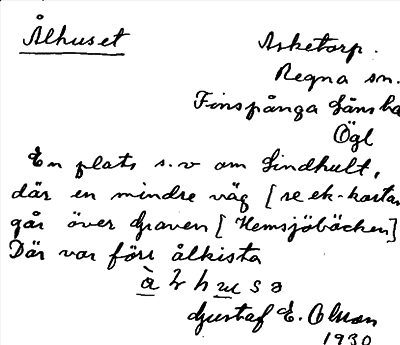 Ålhuset
Asketorp.
Regna sn.
Finspånga länsha
Ögl
En plats s.v om Lindhult,
där en mindre väg [se ek-kartan
går över Graven [Hemsjöbäcken]
Där var förr ålkista
Gustaf E. Olsson
1930